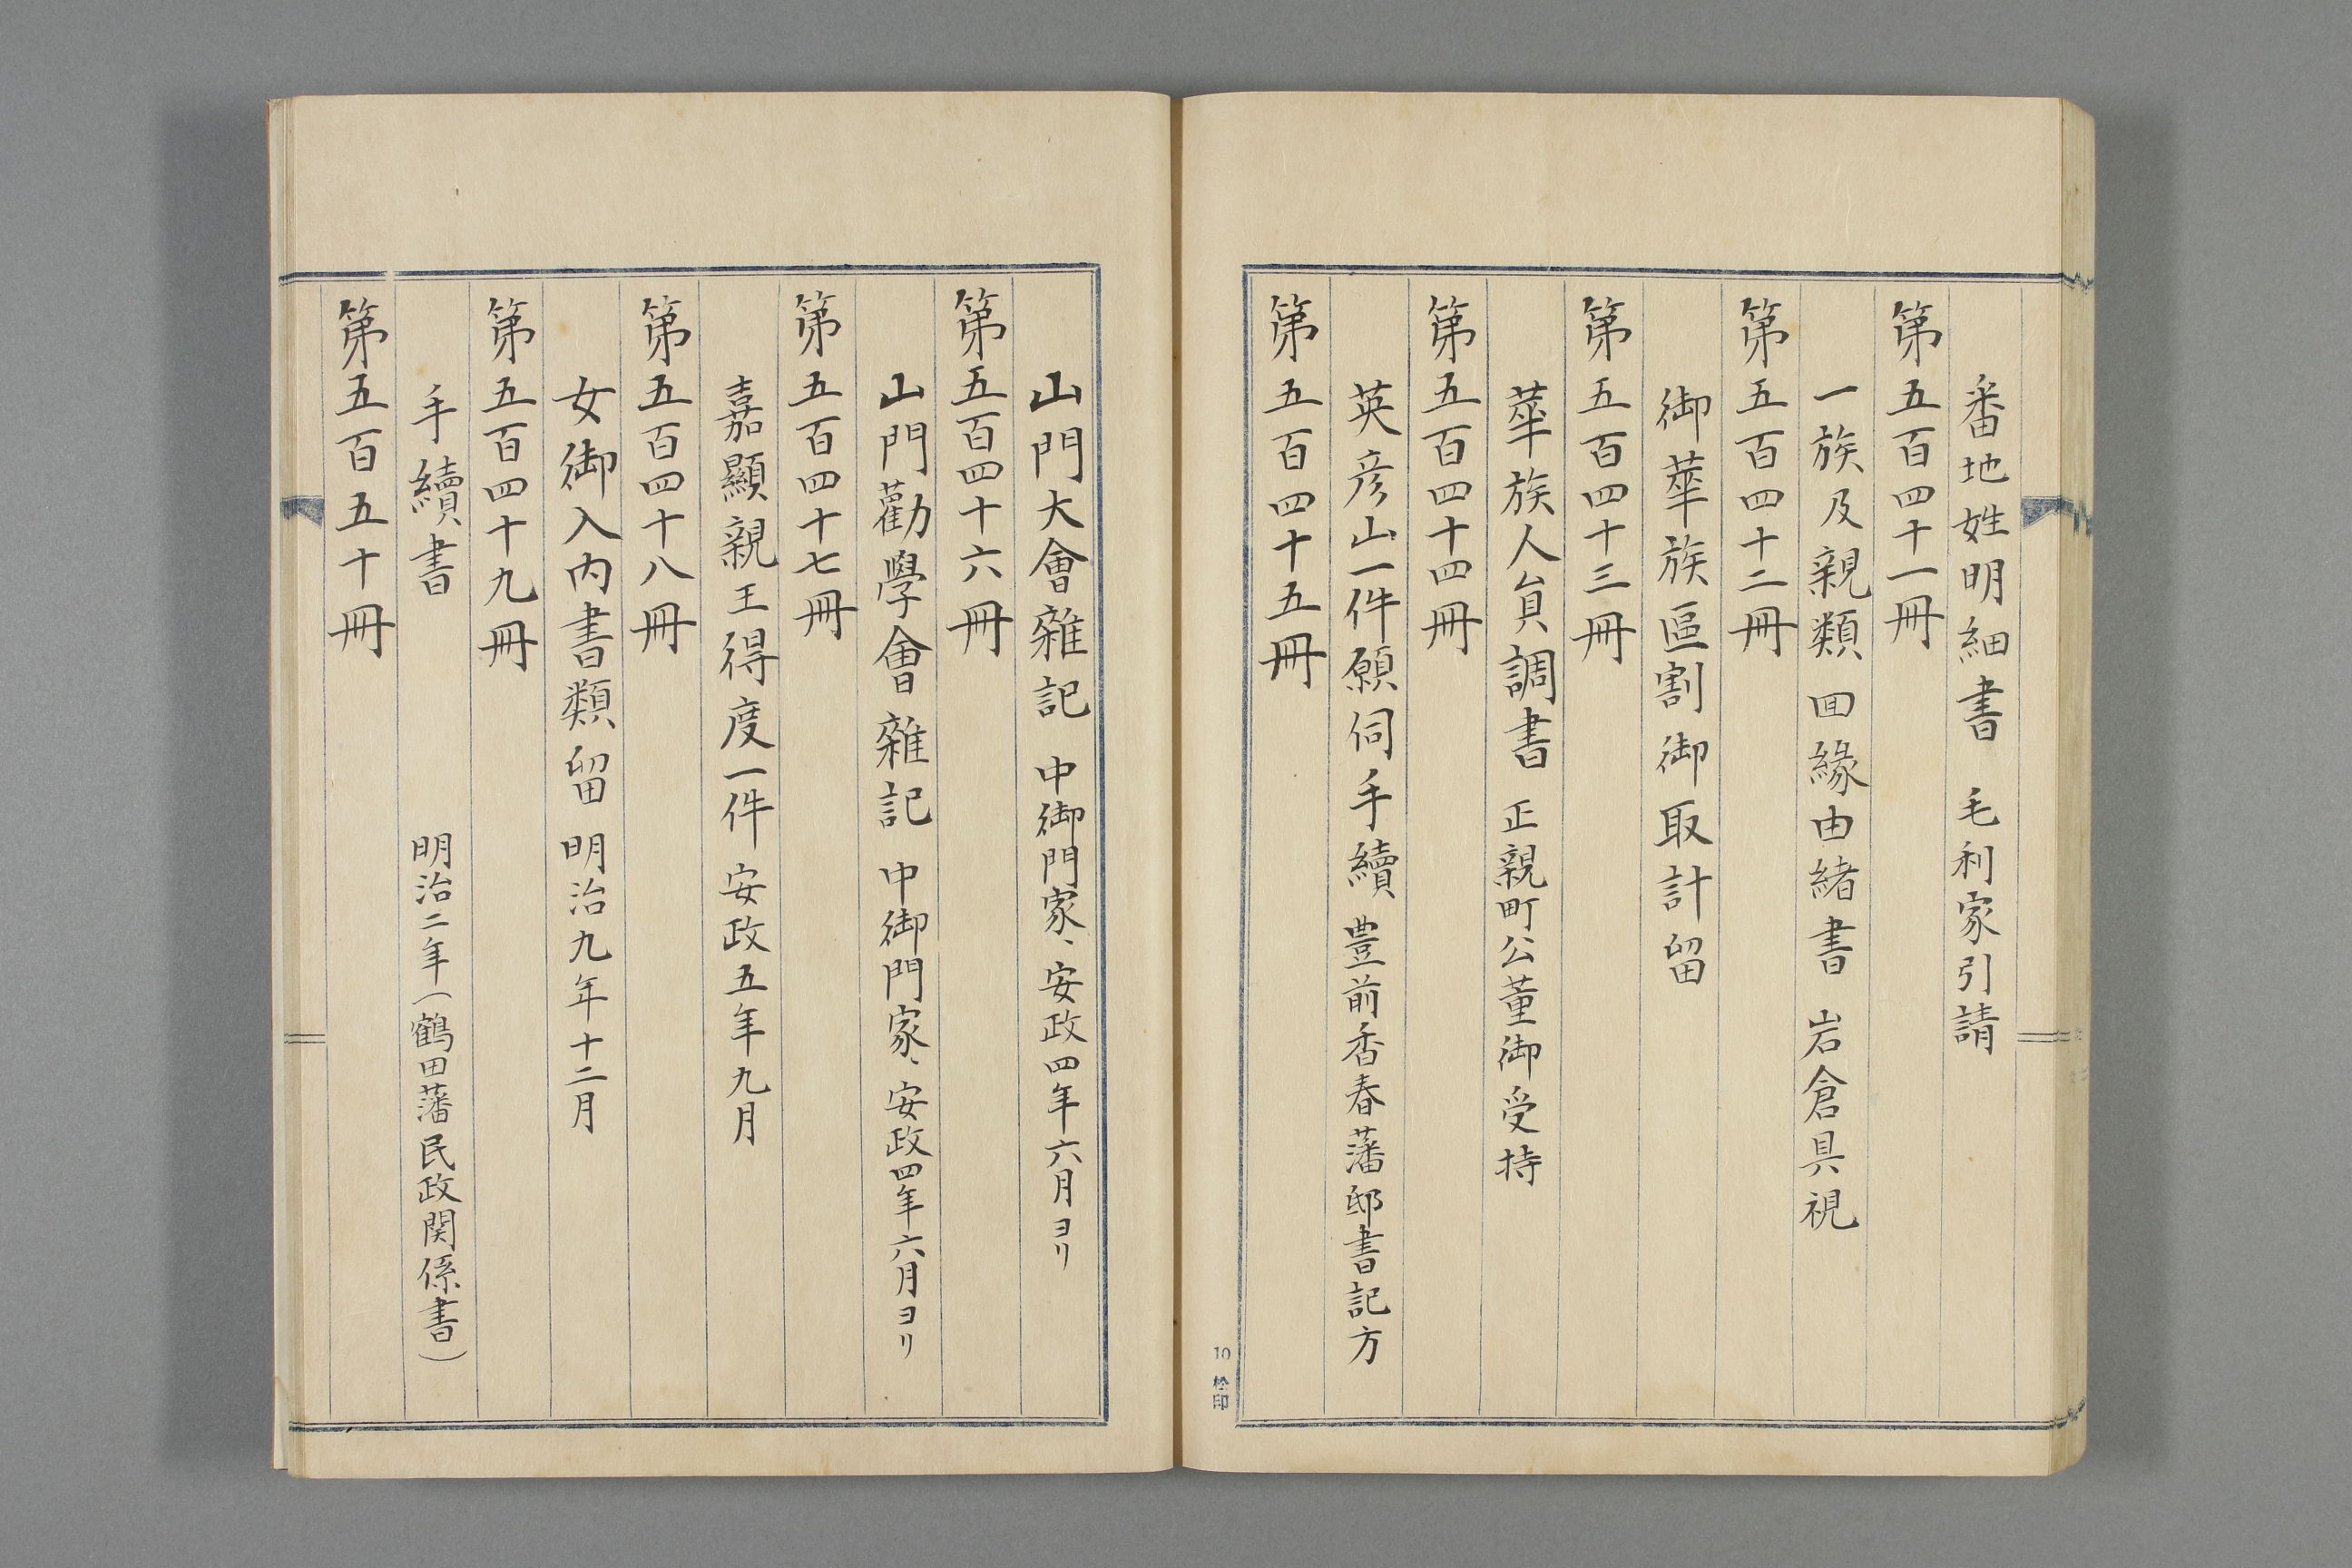 番地姓明細書 毛利家引請
第五百四十一冊
一族及親類回縁由緒書 岩倉具視
第五百四十二冊
御華族區割御取計留
第五百四十三冊
華族人員調書 正親町公董御受持
第五百四十四冊
英彦山一件願伺手續 豊前香春藩邸書記方
第五百四十五冊
10 松印
山門大會雜記 中御門家、安政四年六月ヨリ
第五百四十六冊
山門勸學會雜記 中御門家、安政四年六月ヨリ
第五百四十七冊
嘉顯親王得度一件 安政五年九月
第五百四十八冊
女御入内書類留 明治九年十二月
第五百四十九冊
手續書 明治二年(鶴田藩民政関係書)
第五百五十冊